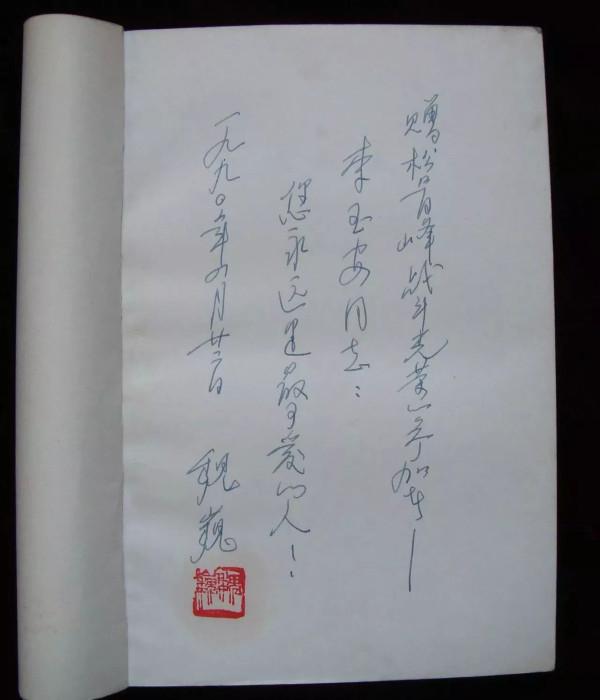 赠松骨峰战斗光荣的参加者——
李玉安同志：
您永远是最可爱的人！
一九九〇年六月廿二日
魏巍